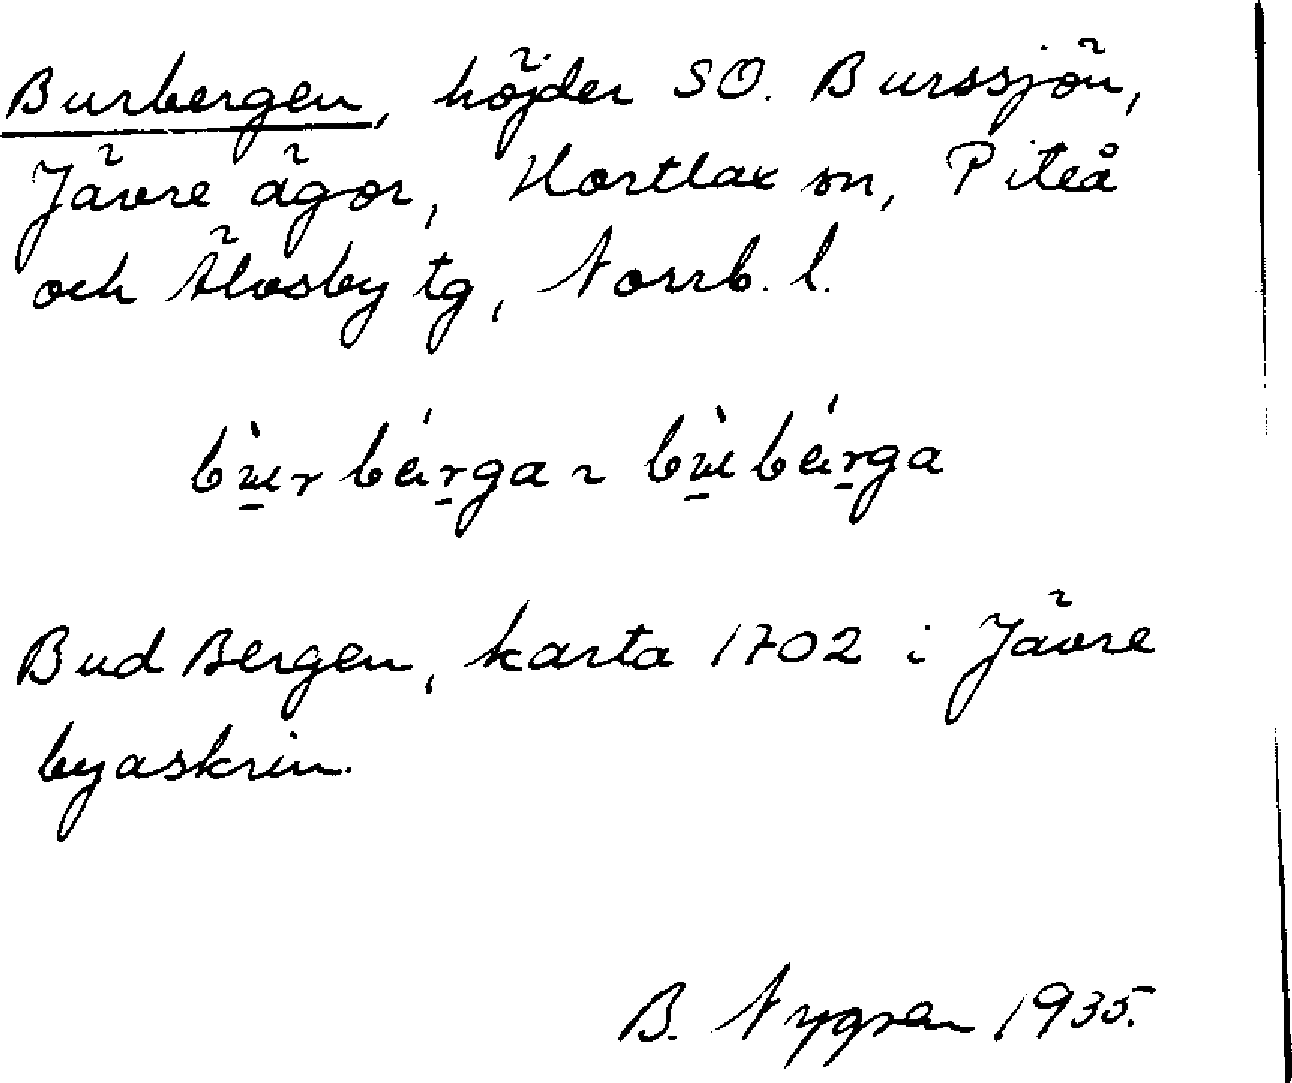 Burbergen, höjder SO. Burssjön,
Jävre ägor, Hortlax sn, Piteå
och Älvsby tg, Norrb. l.
bùrbárga ~ bùbárga
Bud Bergen, karta 1702 i Jävre
byaskrin.
B. Nygren 1935.